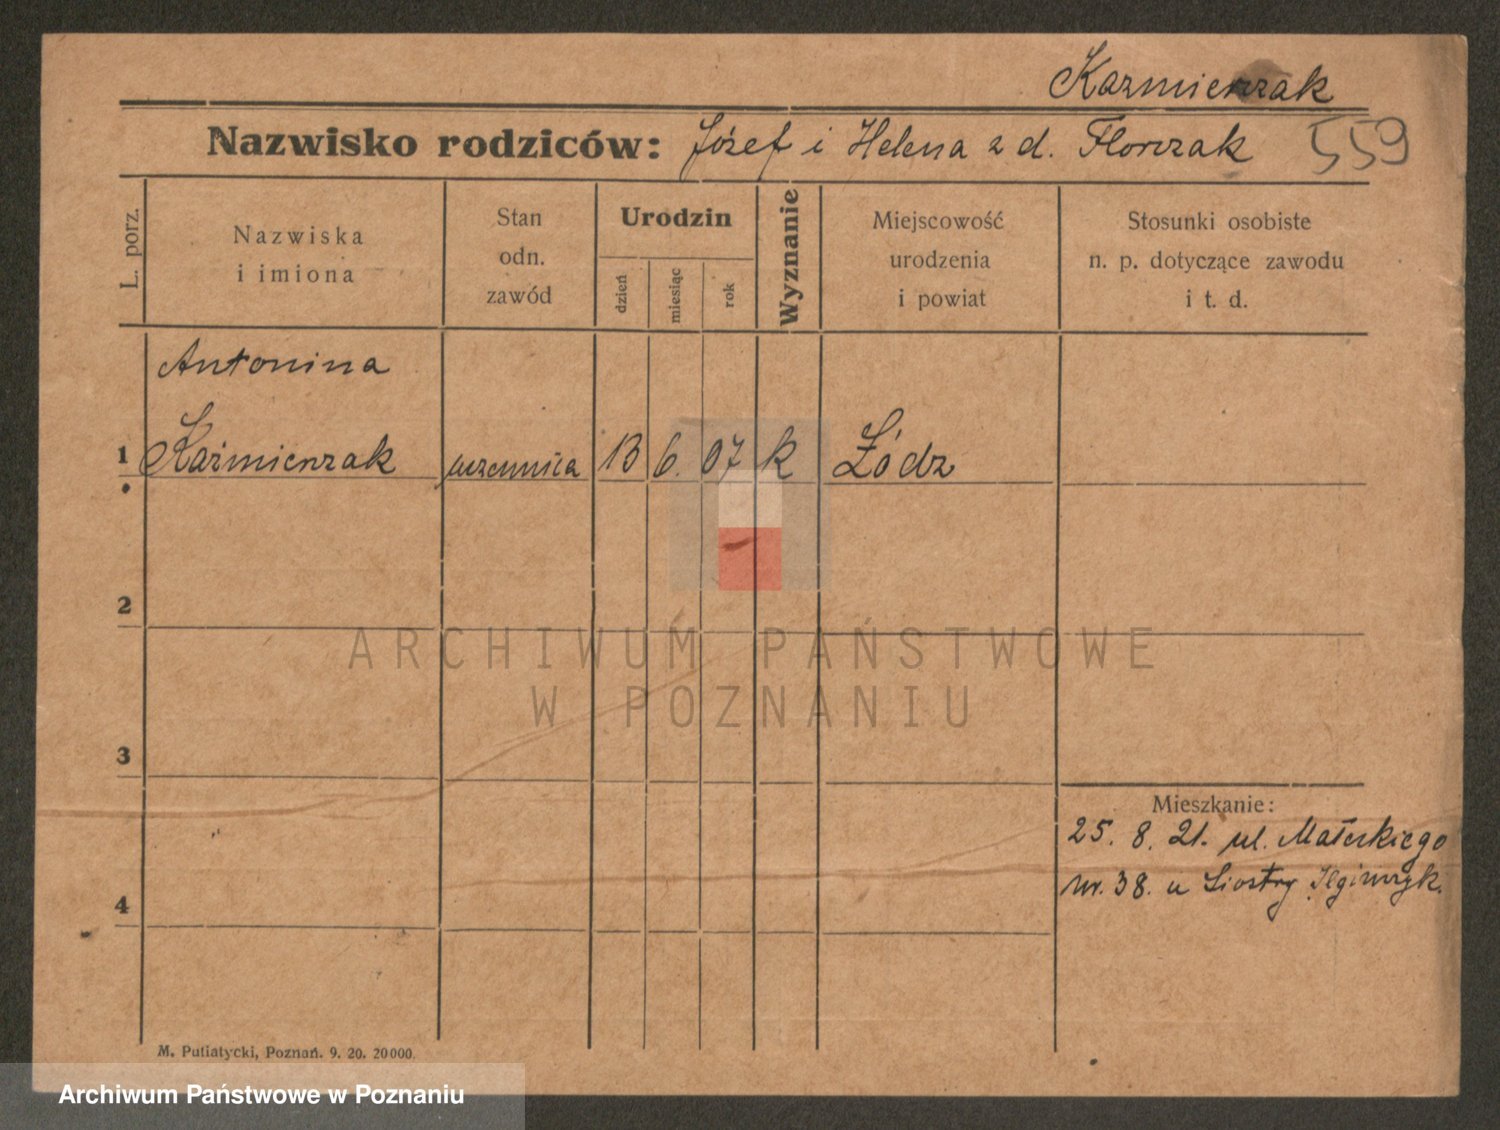 Kazmierczak
Nazwisko rodziców: Józef i Helena z d. Florczak 559
L. porz.
Nazwiska
i imiona
Stan
odn.
zawód
Urodzin
dzień
miesiąc
rok
Wyznanie
Miejscowość
urodzenia
i powiat
Stosunki osobiste
n. p. dotyczące zawodu
i t. d.
Antonina
1 Kaźmierczak uczennica 13 6. 07 k Łódz
2
3
4
Mieszkanie:
25. 8. 21. ul. Matejkiego
nr. 38. u Siostry
ARCHIWUM PAŃSTWOWE
W POZNANIU
M. Putiatycki, Poznań. 9. 20. 20000.
Archiwum Państwowe w Poznaniu